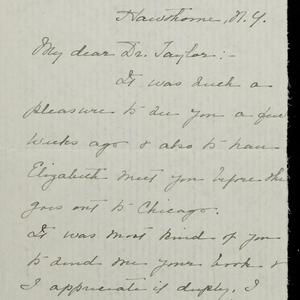 Hawthorne, N.Y.
My dear Dr. Taylor:-
It was such a
pleasure to see you a few
weeks ago & also to have
Elizabeth meet you before she
goes out to Chicago.
It was most kind of you
to send me your book &
I appreciate it deeply. I